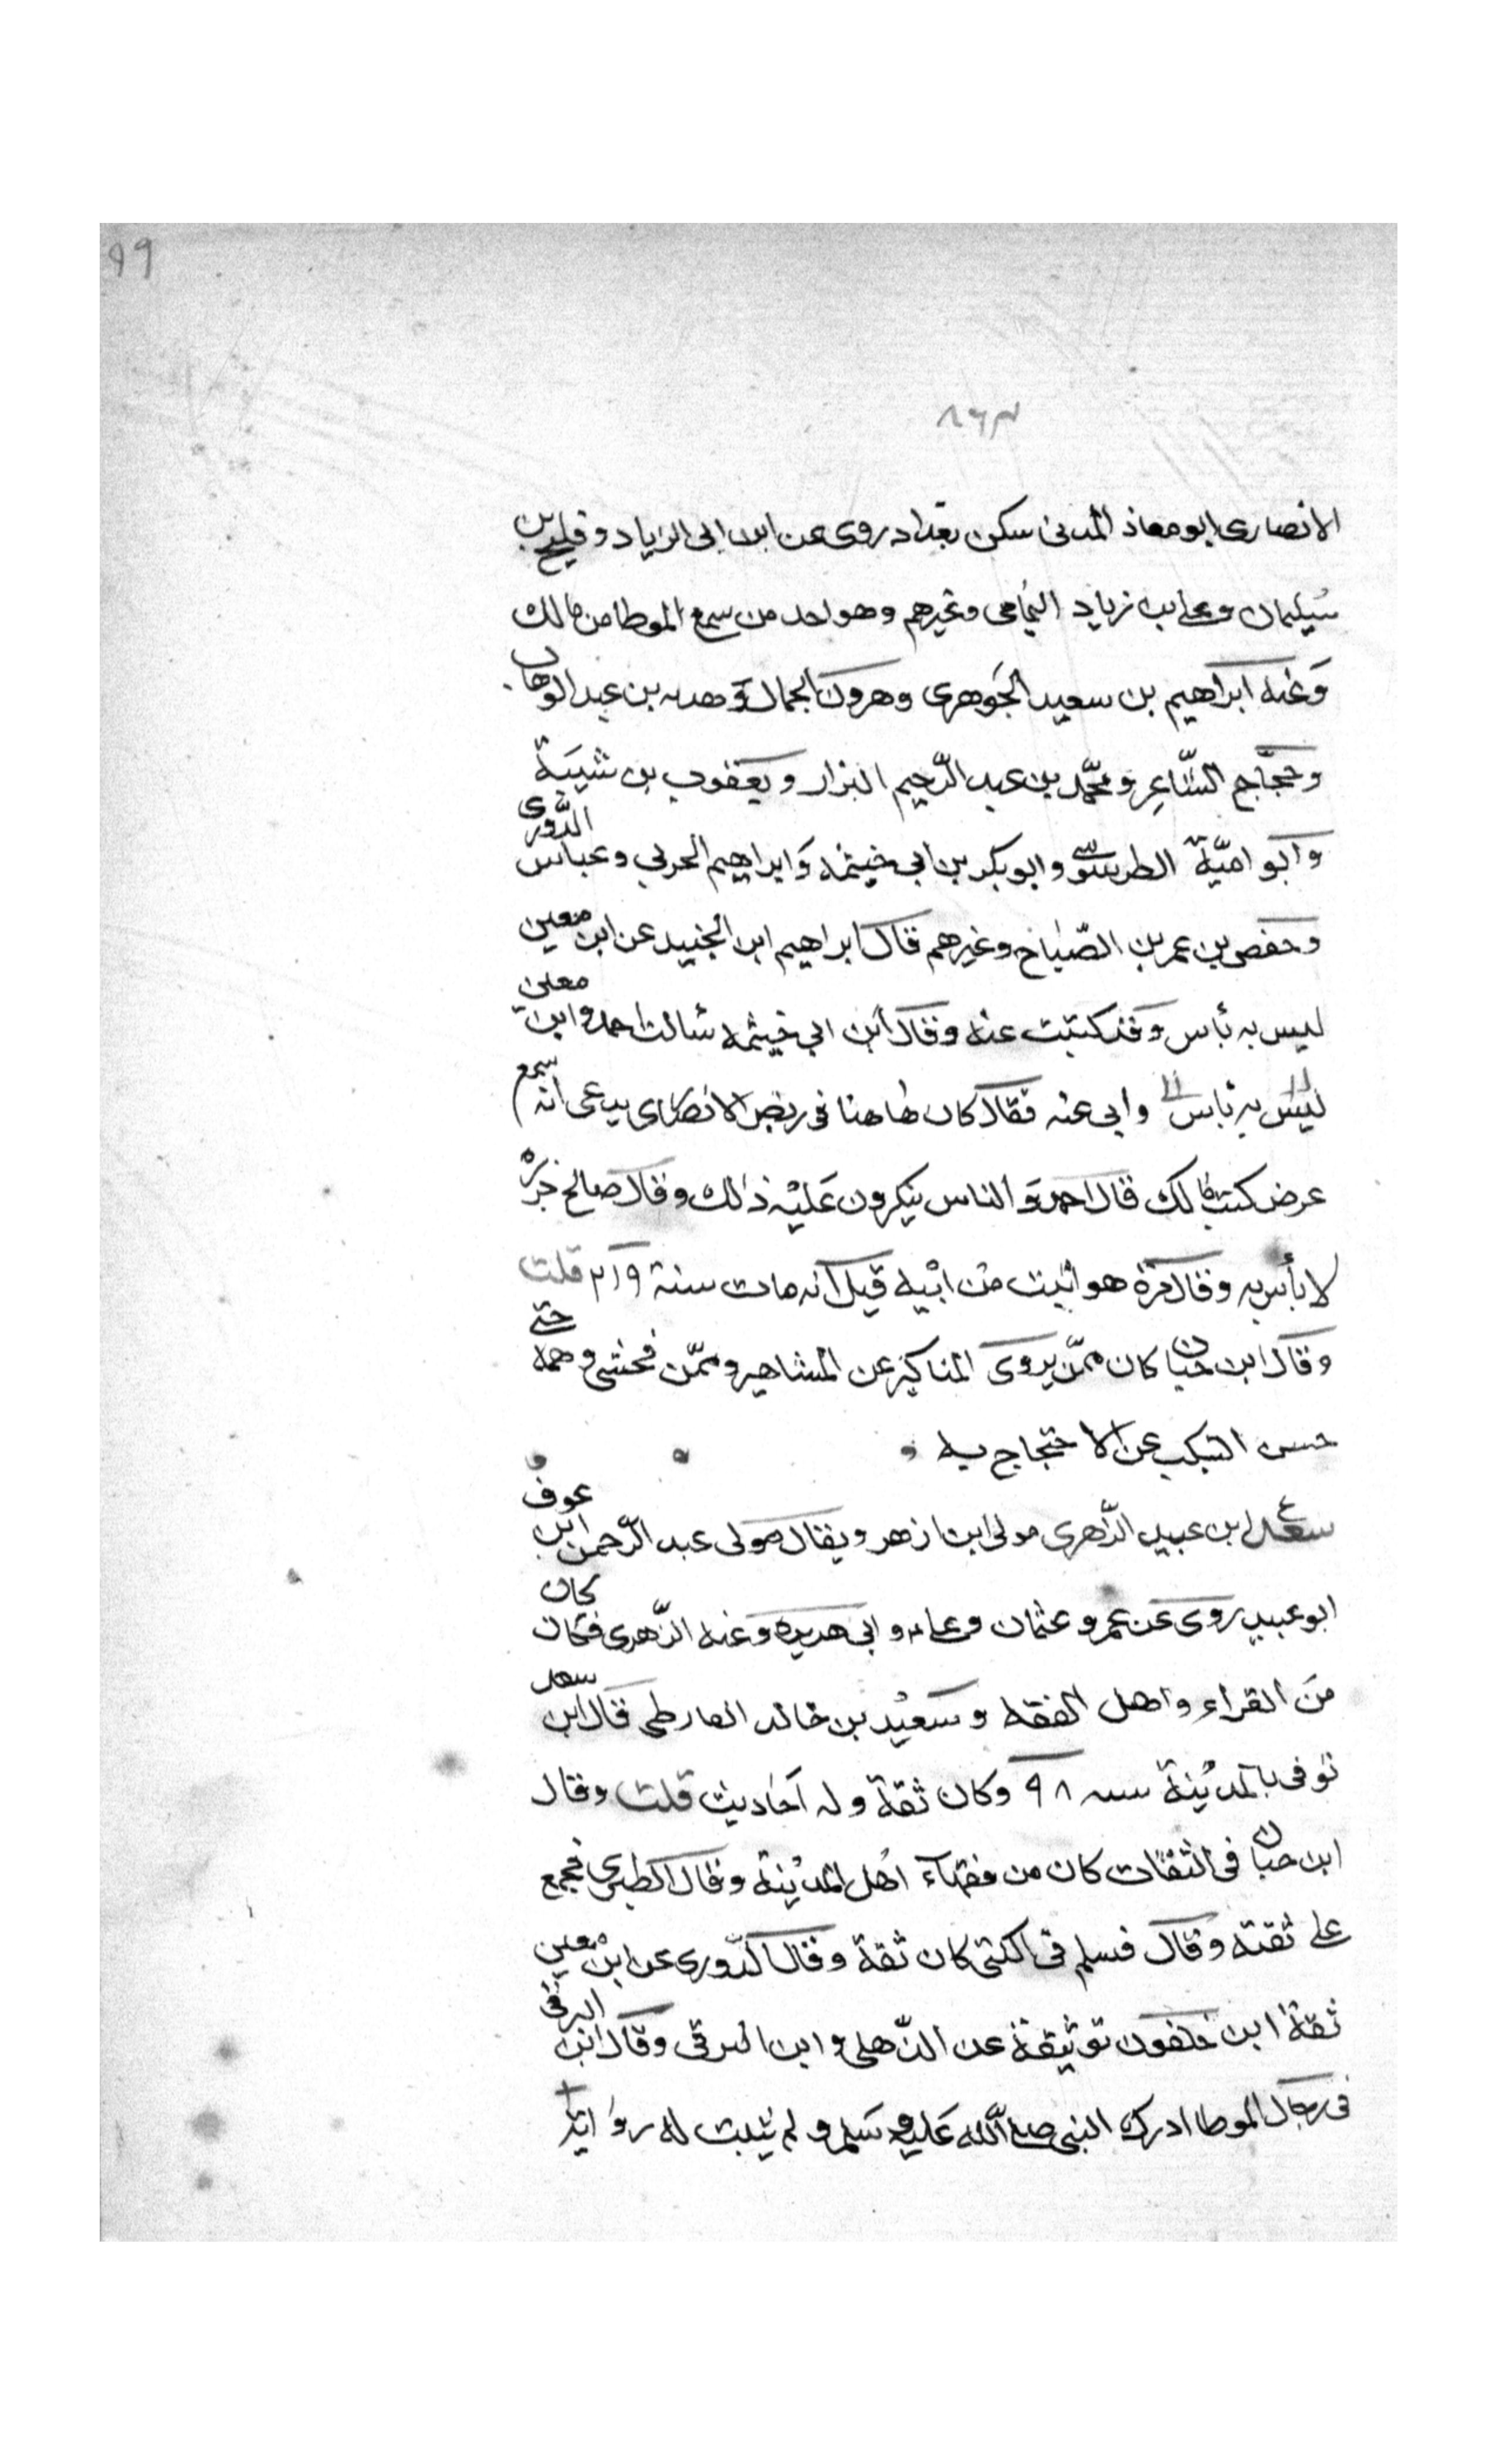 ٩٩
٨٦٣
الانصارى ابو معاذ المدنى سكن بغداد روى عن ابن ابى الزياد و فليح بن
سُيلمان وعلى بن زياد اليُمامى وغيرهم وهو احد من سمع الموطا من مالك
وَعنه ابراهيم بن سعيد الجَوهرى وهرون الجمال و هدبه بن عبد الوهاب
وحجّاج الشّاعر و محمّد بن عبد الرّحيم البزار و يعقوب بن شيبَة
وابو اميّة الطرسوسى وابو بكر بن ابى خيثمه وَابراهيم الحربى وعباس الدّورى
وحفص بن عمر بن الصّباح وغيرهم قال ابراهيم ابن الجنيد عن ابن معين
ليس به بأس وقد كتبت عنه وقال ابن ابى خيثمه سالت احمد وابن معين
ليس به بأس وابى عنه فقال كان هاهنا فى ربض الانصارى يدعى انه سمع
عرض كتب مالك قال احمد وَالناس ينكرون عَليْه ذالك وقال صالح جزره
لا بأس به وقال مرة هو اثبت من ابيه قيل انه مات سنة ٢١٩ قلت
وقال ابن حبان كان ممّن يروى المناكير عن المشاهير و ممّن فحش وهمه حتى
حسن التنكب عن الاحتجاج به
سعد ابن عبيد الزّهرى مولى ابن ازهر ويقال مولى عبد الرّحمن ابن عوف
ابو عبيد روى عن عمر و عثمان وعلى و ابى هريره وَعنه الزّهرى فكان كان
منَ القراء واهل الفقه وسَعيْد بن خالد القارظى قال ابن سعد
توفى بالمديْنة سنه ٩٨ وكان ثقة وله اَحاديث قلت وقال
ابن حبان فى الثقات كان من فقهآء اهل المديْنة وقال الطبرى مجمع
على ثقته وقال مسلم فى الكنى كان ثقة وقال الدّورى عن ابن معين
ثقة ابن خلفون توثيقة عن الذّهلى و ابن البرقى وقال ابن البرقى
فى رجال الموطا ادرك النبى صلى اللّه عَليه وسَلم و لم يثبت له روايه